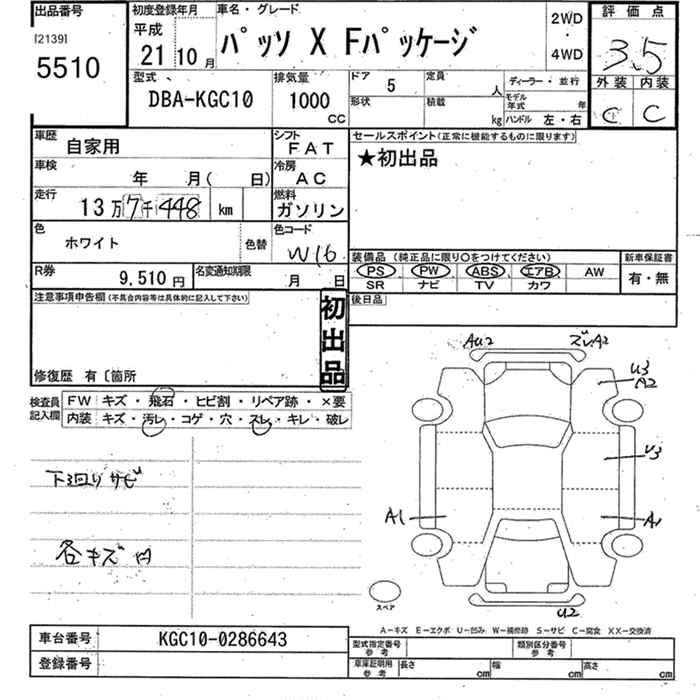 出品番号
[2139]
5510
初度登録年月
平成
21 10 月
車名・グレード
パッソ X Fパッケージ
2WD
・
4WD
評価点
3.5
外装 内装
C C
型式
DBA-KGC10
排気量
1000
CC
ドア
5
定員
人
形状
積載
kg
ディーラー・並行
モデル年式 年
ハンドル 左・右
車歴
自家用
シフト
FAT
車検
年 月( 日)
冷房
AC
走行
13 万 7 千 448 km
燃料
ガソリン
色
ホワイト
色替
色コード
W16
R券
9,510 円
名変通知期限
月 日
セールスポイント(正常に機能するものに限ります)
★初出品
装備品 (純正品に限り○をつけてください)
PS PW ABS エアB AW
SR ナビ TV カワ
新車保証書
有・無
後日品
注意事項申告欄(不具合内容等は具体的に記入して下さい)
初出品
修復歴 有〔箇所
検査員記入欄
FW キズ・飛石・ヒビ割・リペア跡・×要
内装 キズ・汚レ・コゲ・穴・スレ・キレ・破レ
下廻りサビ
各キズ凹
AU2
ズレA2
U3
A2
U3
A1
A1
U2
スペア
A-キズ E-エクボ U-凹み W-補修跡 S-サビ C-腐食 XX-交換済
車台番号
KGC10-0286643
登録番号
型式指定番号
参考
類別区分番号
参考
車庫証明用
参考
長さ cm
幅 cm
高さ cm